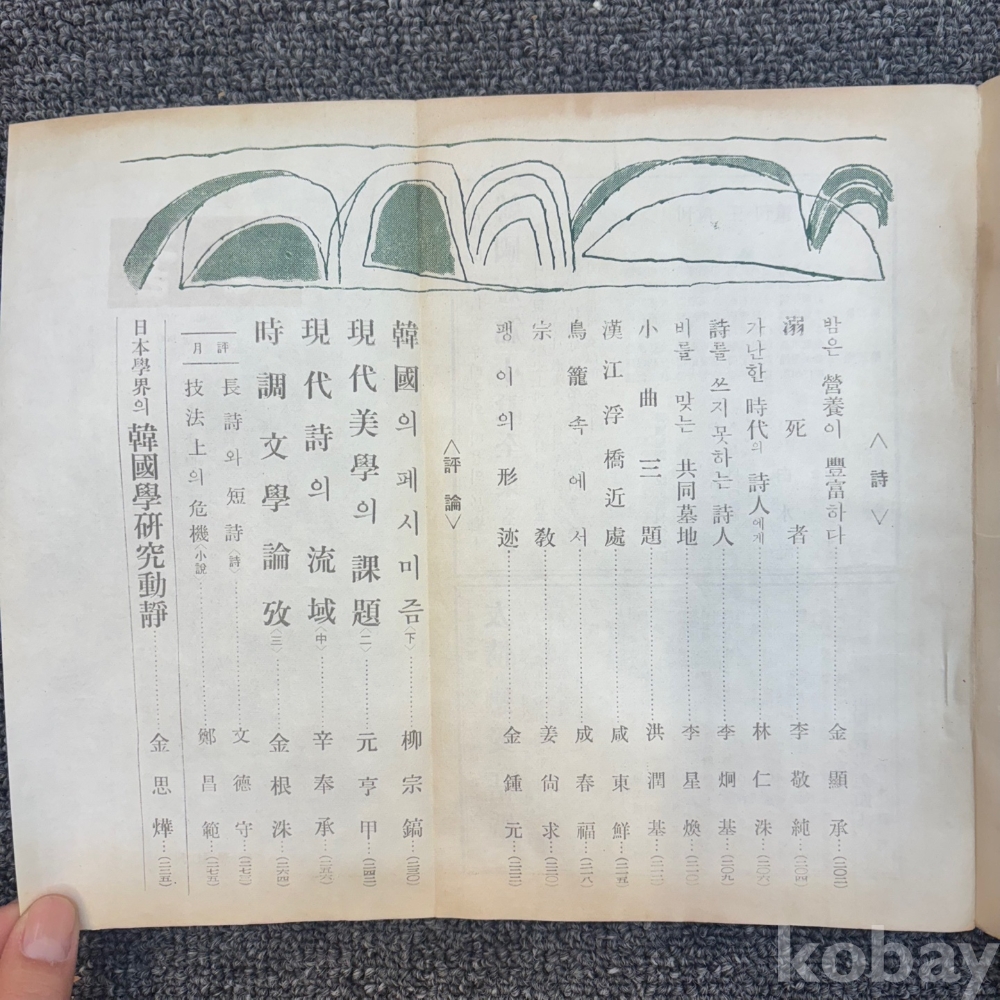 <詩>
밤은 營養이 豐富하다……金顯承…(二〇二)
溺死者……李敬純…(二〇四)
가난한 時代의 詩人에게……林仁洙…(二〇六)
詩를 쓰지 못하는 詩人……李炯基…(二〇九)
비를 맞는 共同墓地……李星煥
小曲三題……洪潤基
漢江浮橋近處……咸東鮮…(二一五)
鳥籠속에서……成春福…(二一八)
宗敎……姜尙求
팽이의形迹……金鍾元
<評論>
韓國의 페시미즘<下>……柳宗鎬…(二三〇)
現代美學의 課題<二>……元亨甲…(二四二)
現代詩의 流域<中>……辛奉承…(二五六)
時調文學論攷<三>……金根洙…(二六四)
月評
長詩와 短詩<詩>……文德守…(二七二)
技法上의 危機<小說>……鄭昌範…(二七五)
日本學界의 韓國學硏究動靜……金思燁…(二二五)
kobay